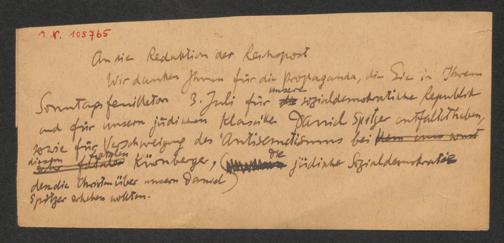 I. N. 105765
An die Redaktion der Reichspost
Wir danken Ihnen für die Propaganda, die Sie in Ihrem
Sonntagsfeuilleton 3. Juli für unsere sozialdemokratische Republik
und für unsern jüdischen Klassiker Daniel Spitzer entfaltet haben,
sowie für Verschweigung des Antisemitismus bei
diesem Kürnberger, (die jüdische Sozialdemokratie
den die Christen über unsern Daniel
Spitzer erheben wollten.